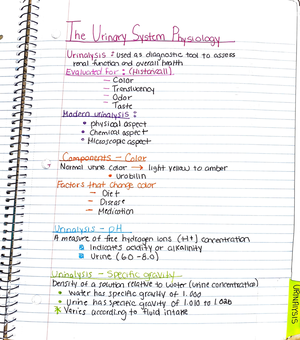 The Urinary System Physiology
Urinalysis : used as diagnostic tool to assess
renal function and overall health
Evaluated for : (Historical)
— Color
— Translucency
— Odor
— Taste
Modern urinalysis :
• physical aspect
• Chemical aspect
• Microscopic aspect
Components - Color
Normal urine color → light yellow to amber
• Urobilin
Factors that change color
— Diet
— Disease
— Medication
Urinalysis - pH
A measure of free hydrogen ions (H+) concentration
Indicates acidity or alkalinity
Urine (6.0 - 8.0)
Urinalysis - Specific gravity
Density of a solution relative to water (urine concentration)
• Water has specific gravity of 1.000
• Urine has specific gravity of 1.010 to 1.025
* Varies according to fluid intake
URINALYSIS